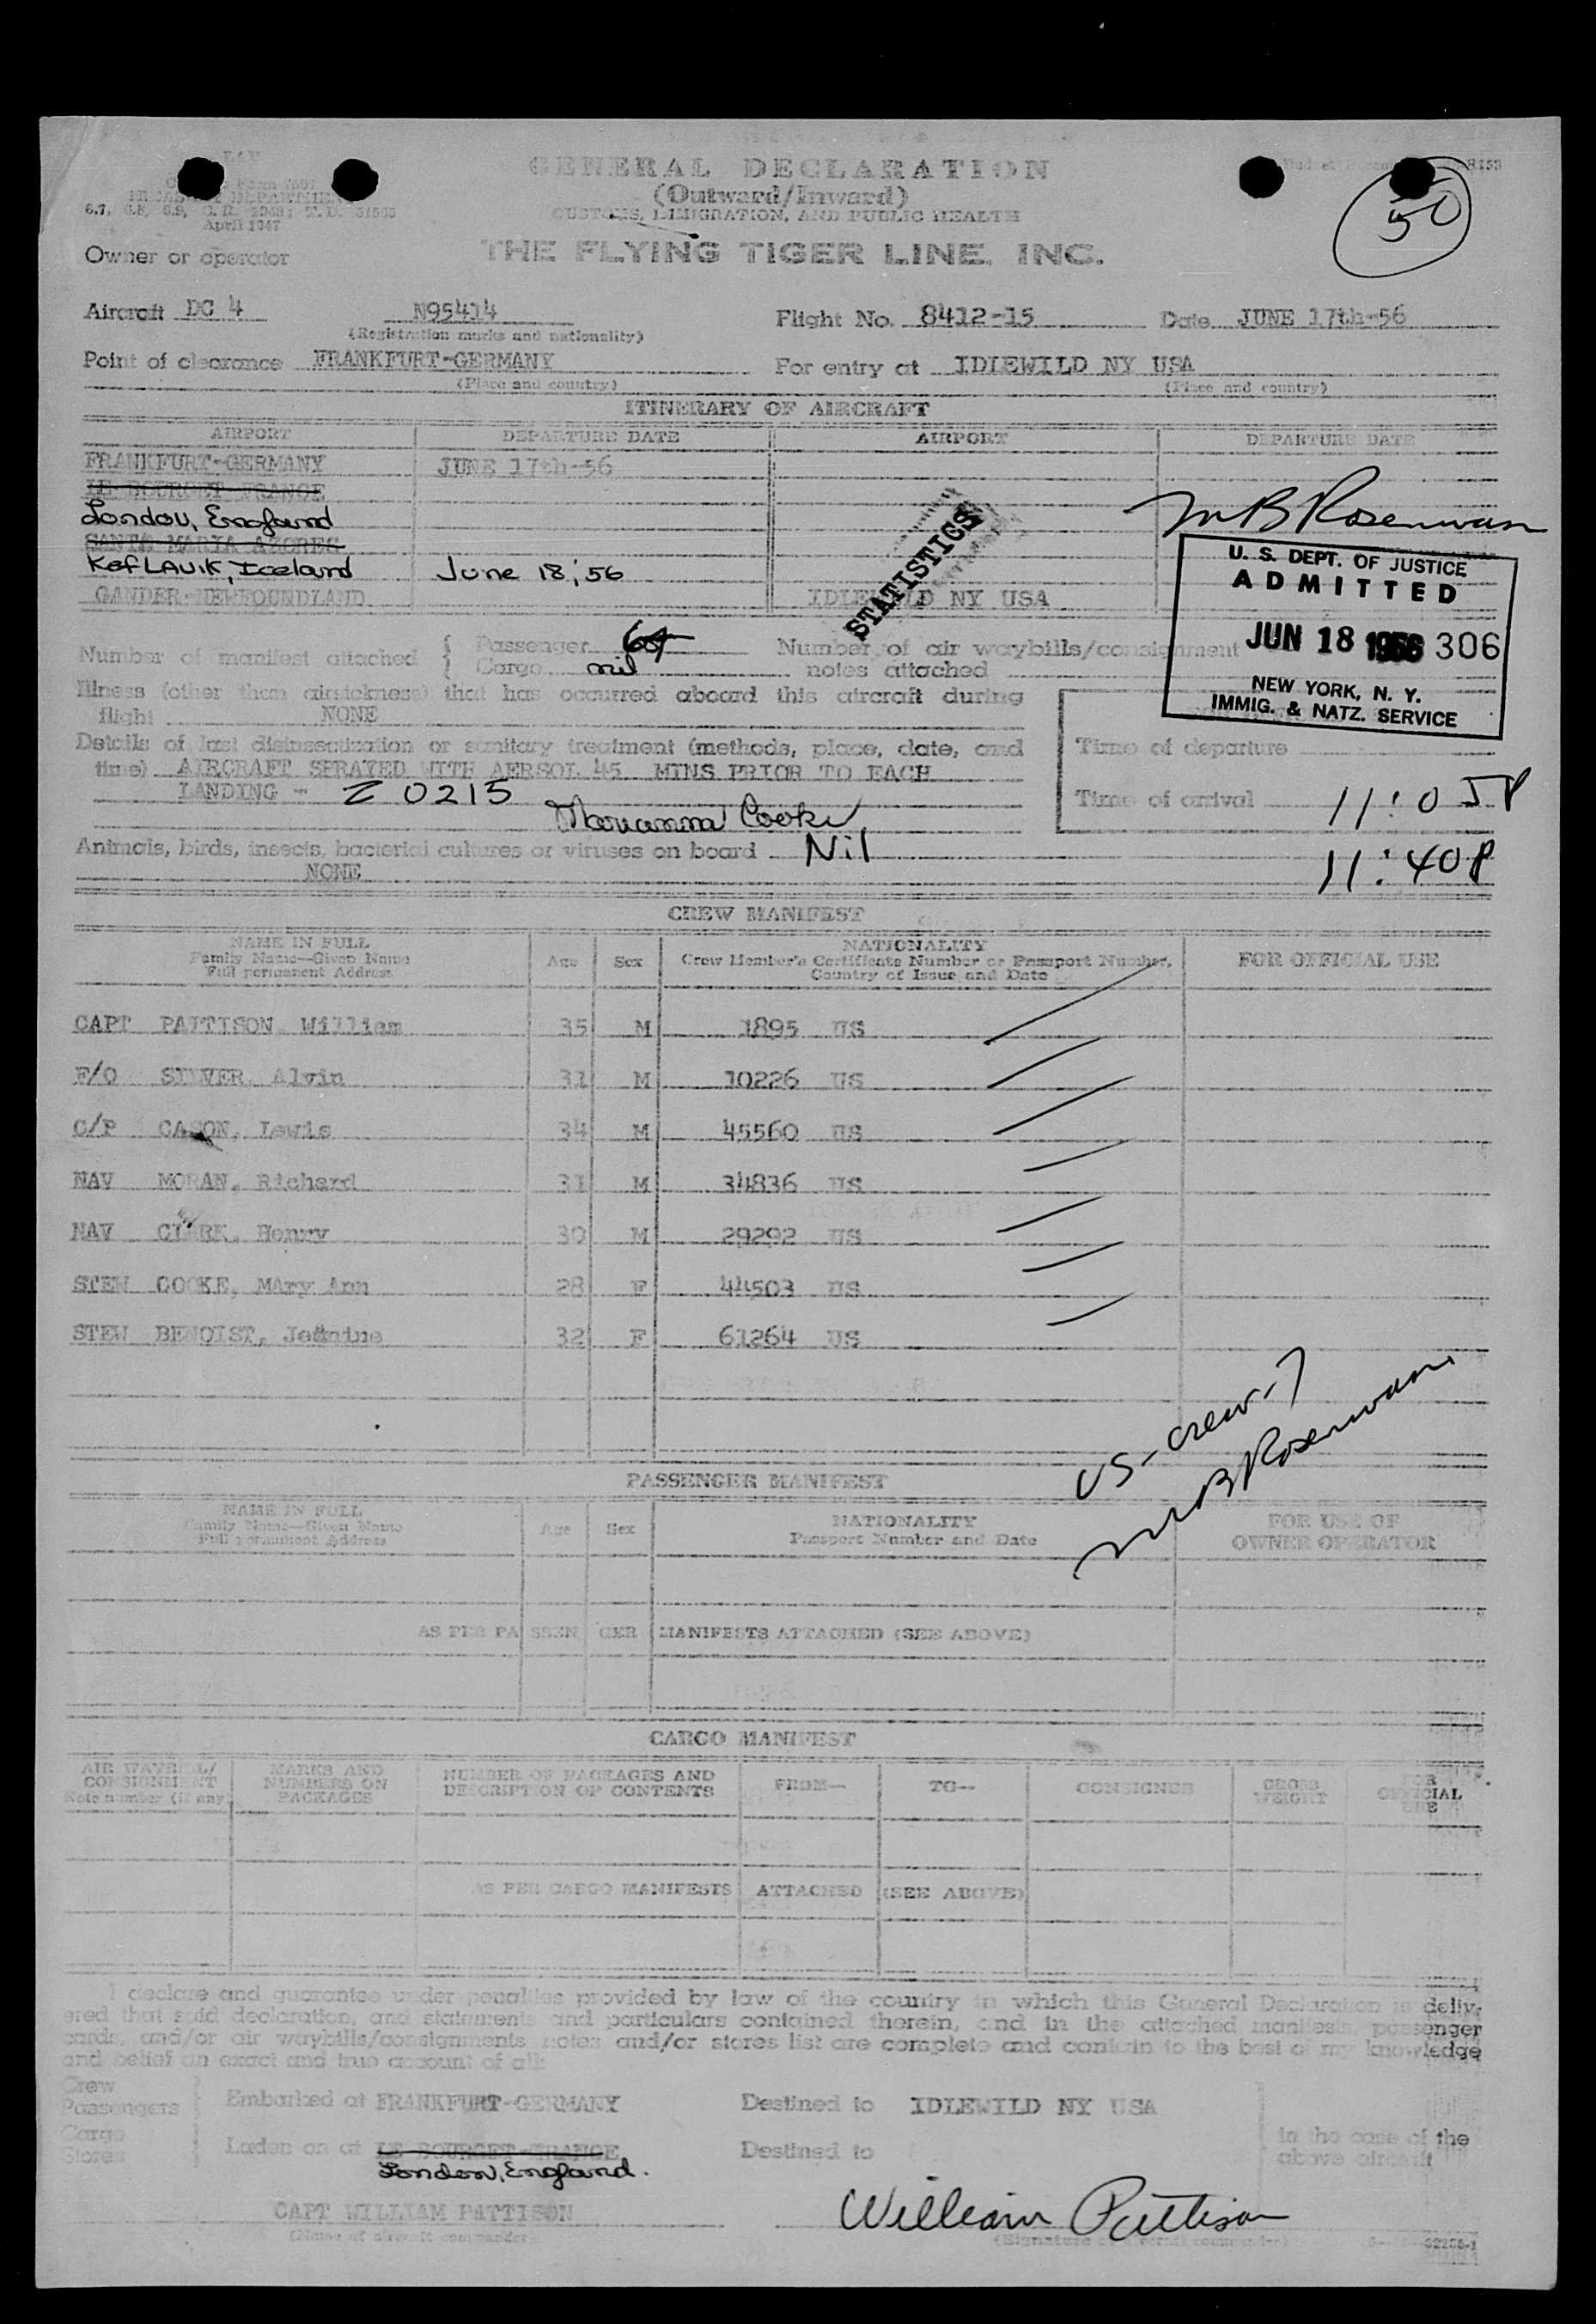 GENERAL DECLARATION
(Outward/Inward)
CUSTOMS, IMMIGRATION, AND PUBLIC HEALTH
April 1947
50
Owner or operator THE FLYING TIGER LINE, INC.
Aircraft DC 4 N95414 Flight No. 8412-15 Date JUNE 17th-56
(Registration marks and nationality)
Point of clearance FRANKFURT-GERMANY For entry at IDLEWILD NY USA
(Place and country) (Place and country)
ITINERARY OF AIRCRAFT
AIRPORT DEPARTURE DATE AIRPORT DEPARTURE DATE
FRANKFURT-GERMANY JUNE 17th-56
LE BOURGET FRANCE
London, England
SANTA MARIA AZORES
KefLAVIK, Iceland June 18, '56
GANDER-NEWFOUNDLAND IDLEWILD NY USA
STATISTICS
M B Rosenwasn
U. S. DEPT. OF JUSTICE
ADMITTED
JUN 18 1956 306
NEW YORK, N. Y.
IMMIG. & NATZ. SERVICE
Number of manifest attached Passenger Number of air waybills/consignment
Cargo nil notes attached
Illness (other than airsickness) that has occurred aboard this aircraft during
flight NONE
Details of last disinsectization or sanitary treatment (methods, place, date, and
time) AIRCRAFT SPRAYED WITH AERSOL 45 MINS PRIOR TO EACH
LANDING - Z 0215
Marianna Cooke
Time of departure
Time of arrival 11:05P
11:40P
Animals, birds, insects, bacterial cultures or viruses on board Nil
NONE
CREW MANIFEST
NAME IN FULL
Family Name—Given Name
Full permanent Address
Age Sex
NATIONALITY
Crew Member's Certificate Number or Passport Number,
Country of Issue and Date
FOR OFFICIAL USE
CAPT PATTISON William 35 M 1895 US
F/O SILVER, Alvin 31 M 10226 US
C/P CASON, Lewis 34 M 45560 US
NAV MORAN, Richard 31 M 34836 US
NAV CLARK, Henry 30 M 29292 US
STEW COOKE, MAry Ann 28 F 44503 US
STEW BENOIST, Jeannine 32 F 61264 US
US-crew-7
M B Rosenwasn
PASSENGER MANIFEST
NAME IN FULL
Family Name—Given Name
Full permanent Address
Age Sex
NATIONALITY
Passport Number and Date
FOR USE OF
OWNER OPERATOR
AS PER PASSENGER MANIFESTS ATTACHED (SEE ABOVE)
CARGO MANIFEST
AIR WAYBILL/
CONSIGNMENT
Note number (if any)
MARKS AND
NUMBERS ON
PACKAGES
NUMBER OF PACKAGES AND
DESCRIPTION OF CONTENTS
FROM— TO— CONSIGNEE
GROSS
WEIGHT
FOR
OFFICIAL
USE
AS PER CARGO MANIFESTS ATTACHED (SEE ABOVE)
I declare and guarantee under penalties provided by law of the country in which this General Declaration is deliv-
ered that said declaration, and statements and particulars contained therein, and in the attached manifests, passenger
cards, and/or air waybills/consignments notes and/or stores list are complete and contain to the best of my knowledge
and belief an exact and true account of all:
Crew
Passengers Embarked at FRANKFURT-GERMANY Destined to IDLEWILD NY USA
Cargo
Stores Laden on at LE BOURGET-FRANCE Destined to
in the case of the
above aircraft
London, England.
CAPT WILLIAM PATTISON William Pattison
(Name of aircraft commander) (Signature of aircraft commander)